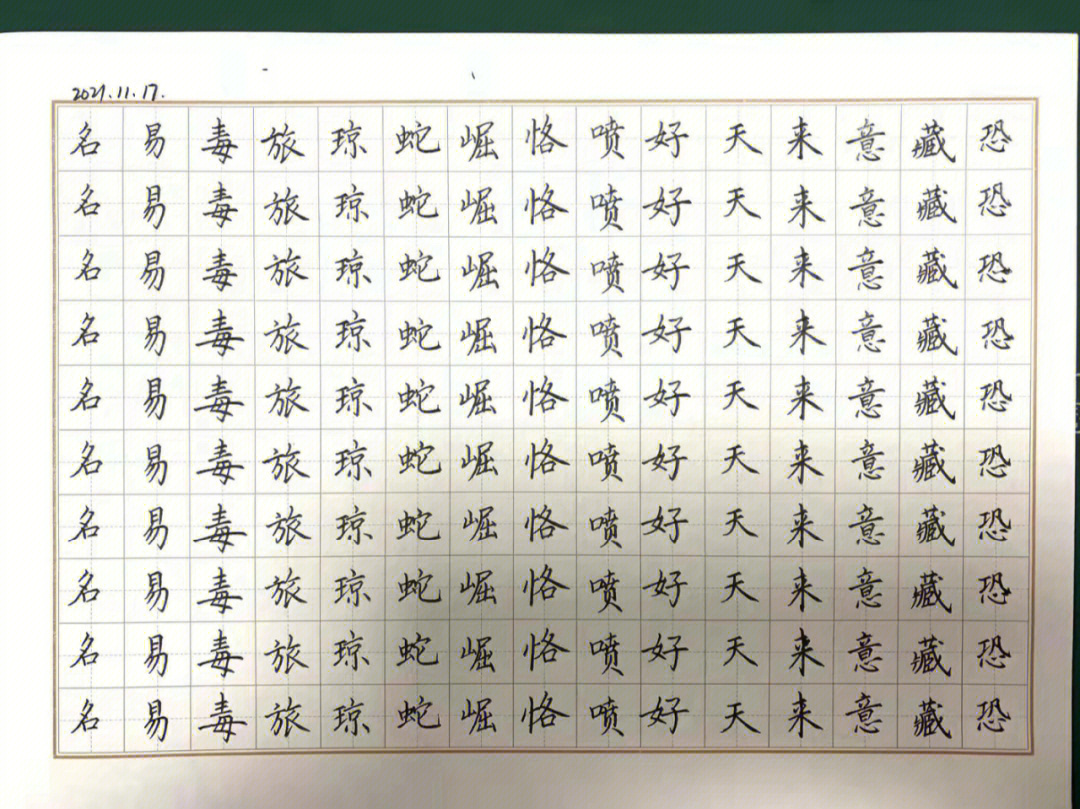 2021.11.17.
名易毒旅琼蛇崛恪喷好天来意藏恐
名易毒旅琼蛇崛恪喷好天来意藏恐
名易毒旅琼蛇崛恪喷好天来意藏恐
名易毒旅琼蛇崛恪喷好天来意藏恐
名易毒旅琼蛇崛恪喷好天来意藏恐
名易毒旅琼蛇崛恪喷好天来意藏恐
名易毒旅琼蛇崛恪喷好天来意藏恐
名易毒旅琼蛇崛恪喷好天来意藏恐
名易毒旅琼蛇崛恪喷好天来意藏恐
名易毒旅琼蛇崛恪喷好天来意藏恐